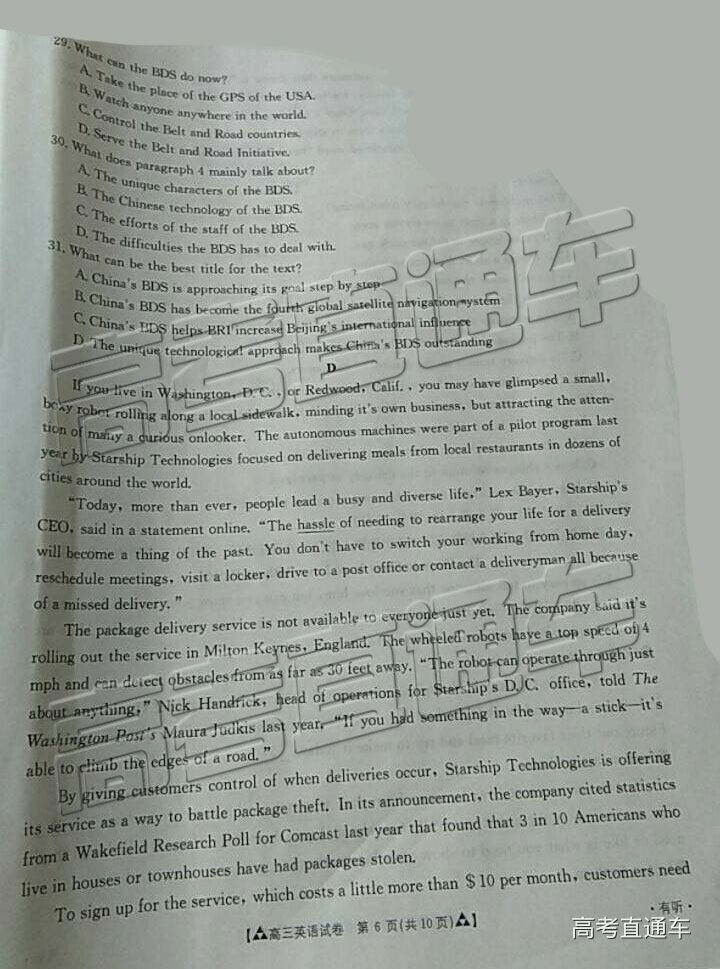 29. What can the BDS do now?
A. Take the place of the GPS of the USA.
B. Watch anyone anywhere in the world.
C. Control the Belt and Road countries.
D. Serve the Belt and Road Initiative.
30. What does paragraph 4 mainly talk about?
A. The unique characters of the BDS.
B. The Chinese technology of the BDS.
C. The efforts of the staff of the BDS.
D. The difficulties the BDS has to deal with.
31. What can be the best title for the text?
A. China's BDS is approaching its goal step by step
B. China's BDS has become the fourth global satellite navigation system
C. China's BDS helps BRI increase Beijing's international influence
D. The unique technological approach makes China's BDS outstanding
D
If you live in Washington, D. C. , or Redwood, Calif. , you may have glimpsed a small,
boxy robot rolling along a local sidewalk, minding it's own business, but attracting the atten-
tion of many a curious onlooker. The autonomous machines were part of a pilot program last
year by Starship Technologies focused on delivering meals from local restaurants in dozens of
cities around the world.
"Today, more than ever, people lead a busy and diverse life," Lex Bayer, Starship's
CEO, said in a statement online. "The hassle of needing to rearrange your life for a delivery
will become a thing of the past. You don't have to switch your working from home day,
reschedule meetings, visit a locker, drive to a post office or contact a deliveryman all because
of a missed delivery. "
The package delivery service is not available to everyone just yet. The company said it's
rolling out the service in Milton Keynes, England. The wheeled robots have a top speed of 4
mph and can detect obstacles from as far as 30 feet away. "The robot can operate through just
about anything," Nick Handrick, head of operations for Starship's D. C. office, told The
Washington Post's Maura Judkis last year, "If you had something in the way—a stick—it's
able to climb the edges of a road. "
By giving customers control of when deliveries occur, Starship Technologies is offering
its service as a way to battle package theft. In its announcement, the company cited statistics
from a Wakefield Research Poll for Comcast last year that found that 3 in 10 Americans who
live in houses or townhouses have had packages stolen.
To sign up for the service, which costs a little more than $10 per month, customers need
【高三英语试卷 第 6 页(共 10 页)】
·有听·
高考直通车
高考直通车
高考直通车